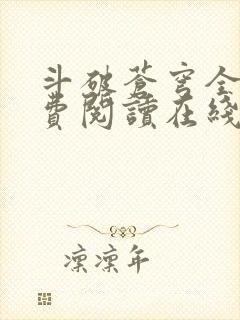 斗破蒼穹全
費閱讀在綫
凛凛年